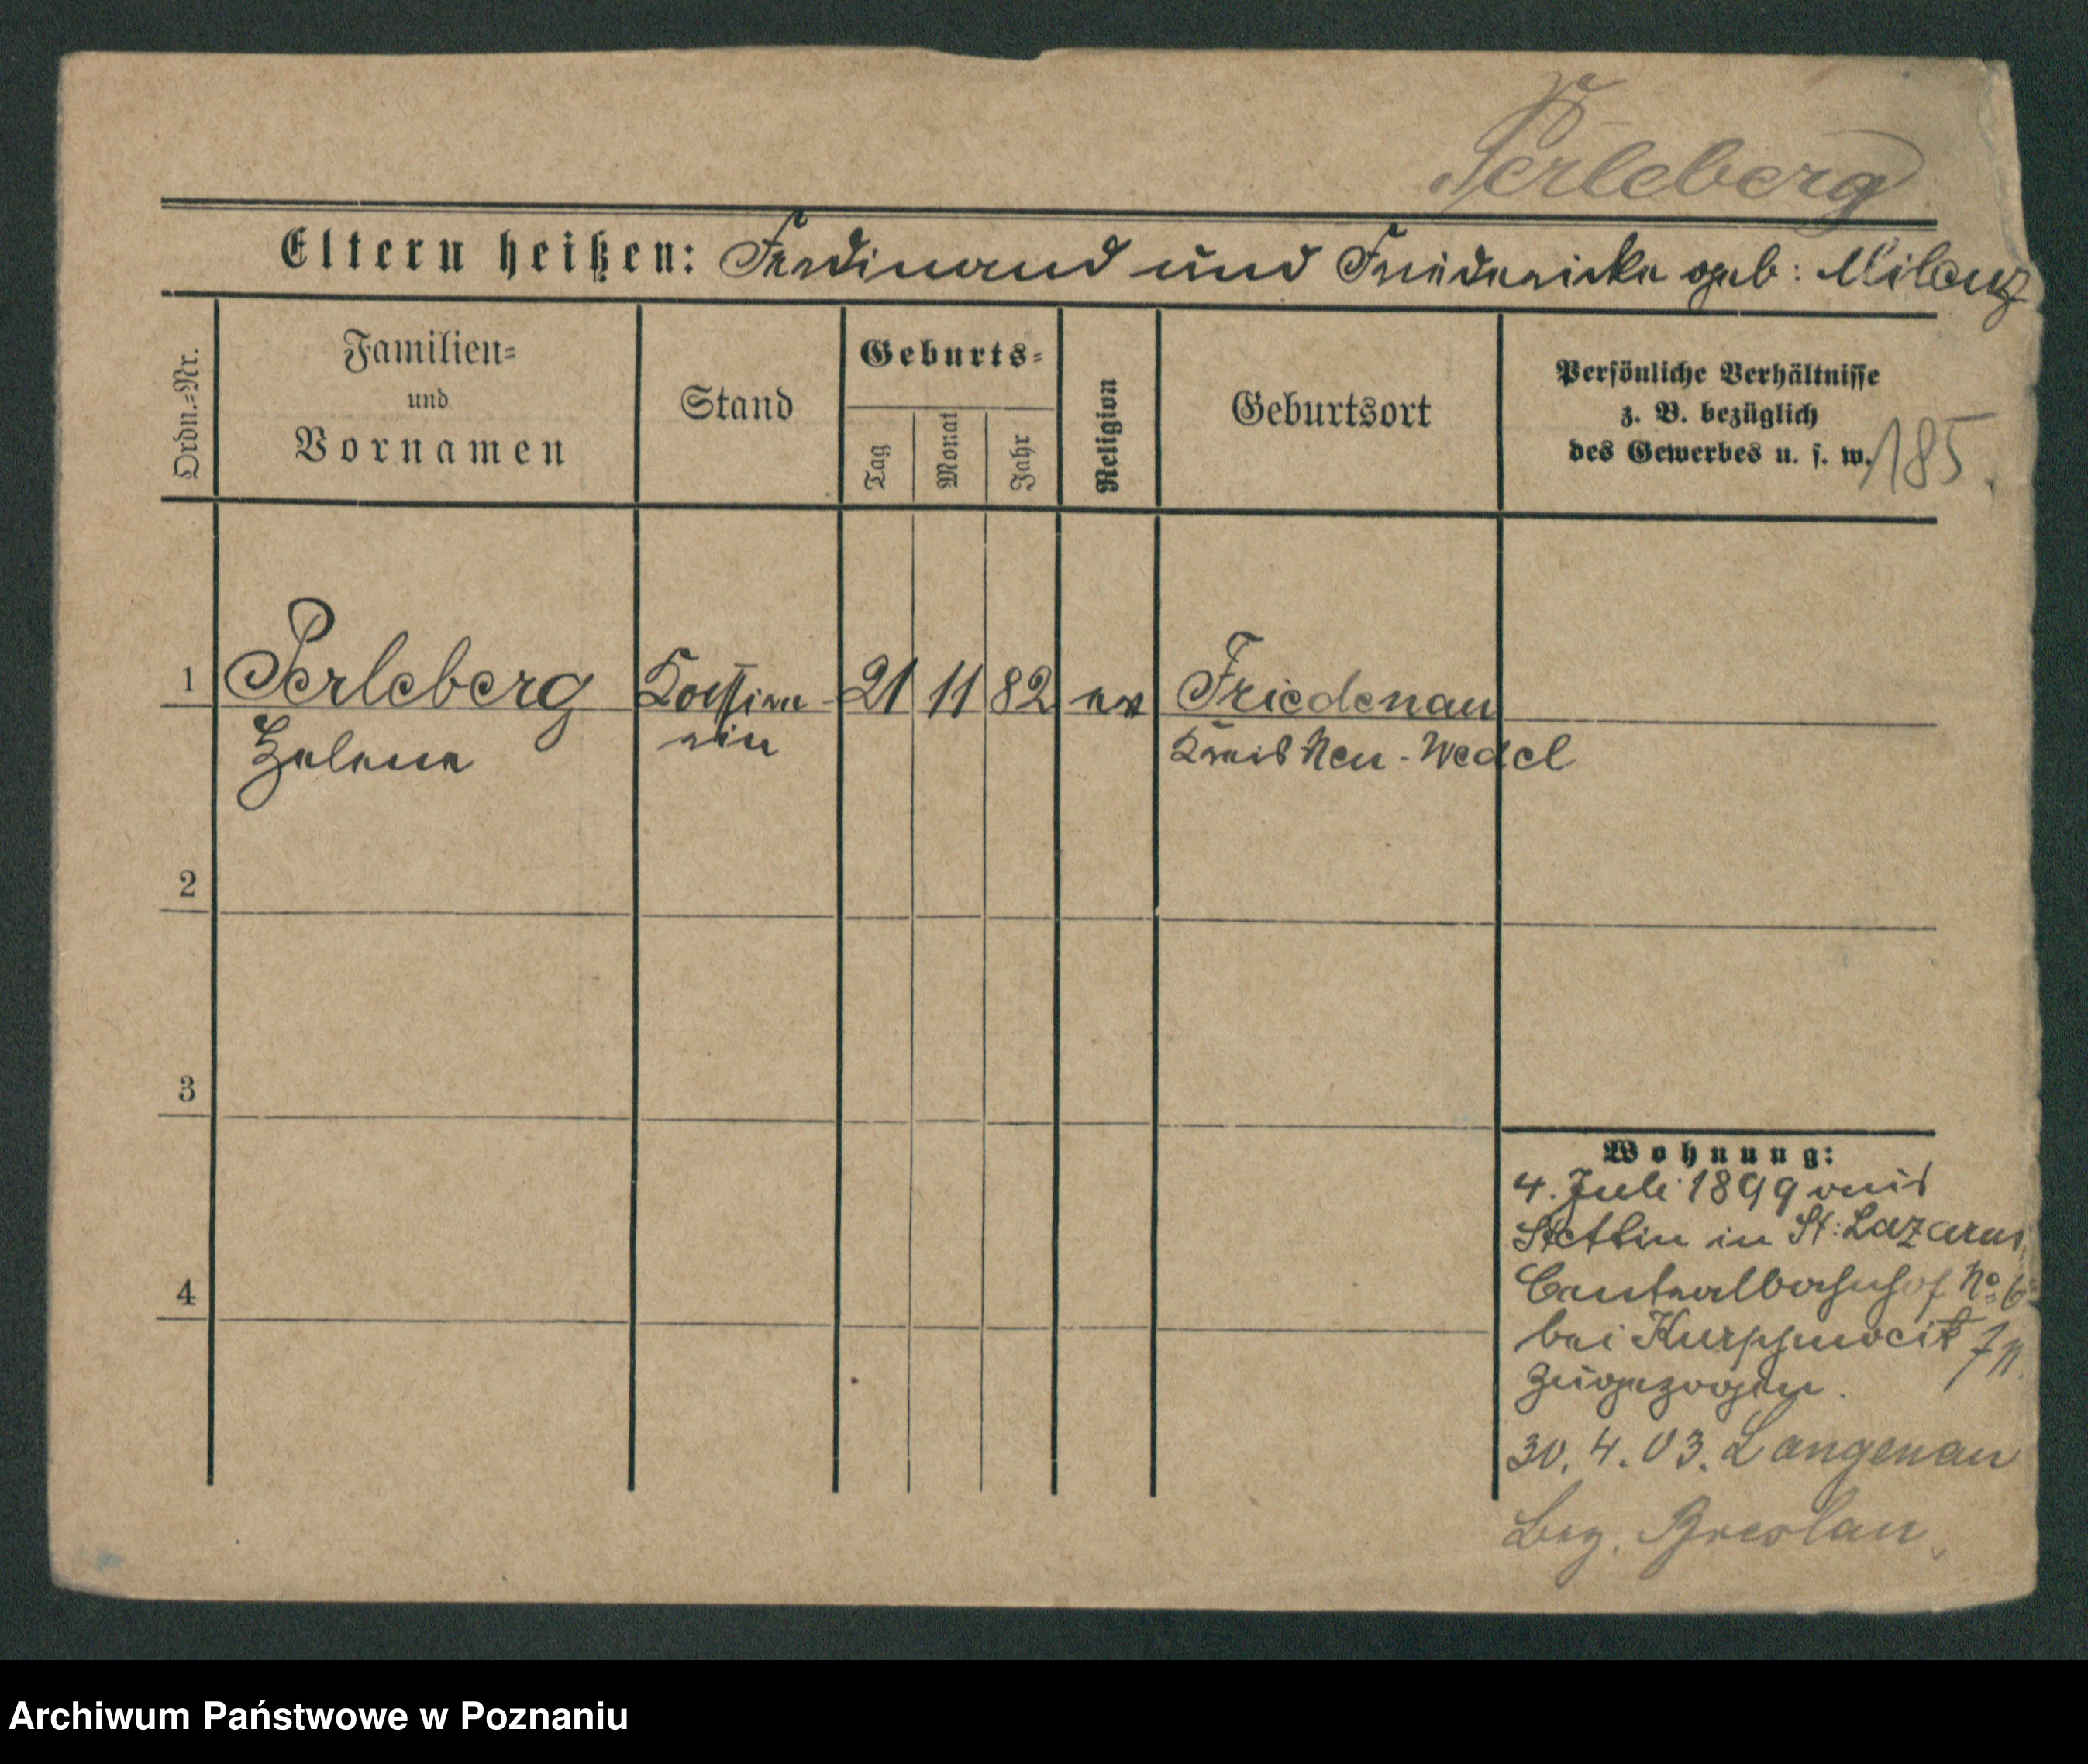 Perleberg
Eltern heißen: Ferdinand und Friedericke geb: Milenz
Ordn.-Nr.
Familien-
und
Vornamen
Stand
Geburts-
Tag
Monat
Jahr
Religion
Geburtsort
Persönliche Verhältnisse
z. B. bezüglich
des Gewerbes u. s. w.
185.
1
Perleberg
Helene
Kassire-
rin
21
11
82
ev
Friedenau
Kreis Neu-Wedel
2
3
4
Wohnung:
4. Juli 1899 aus
Stettin in St: Lazarus
Centralbahnhof No: 6
bei
zugezogen.
30.4.03. Langenau
Bez. Breslau.
Archiwum Państwowe w Poznaniu